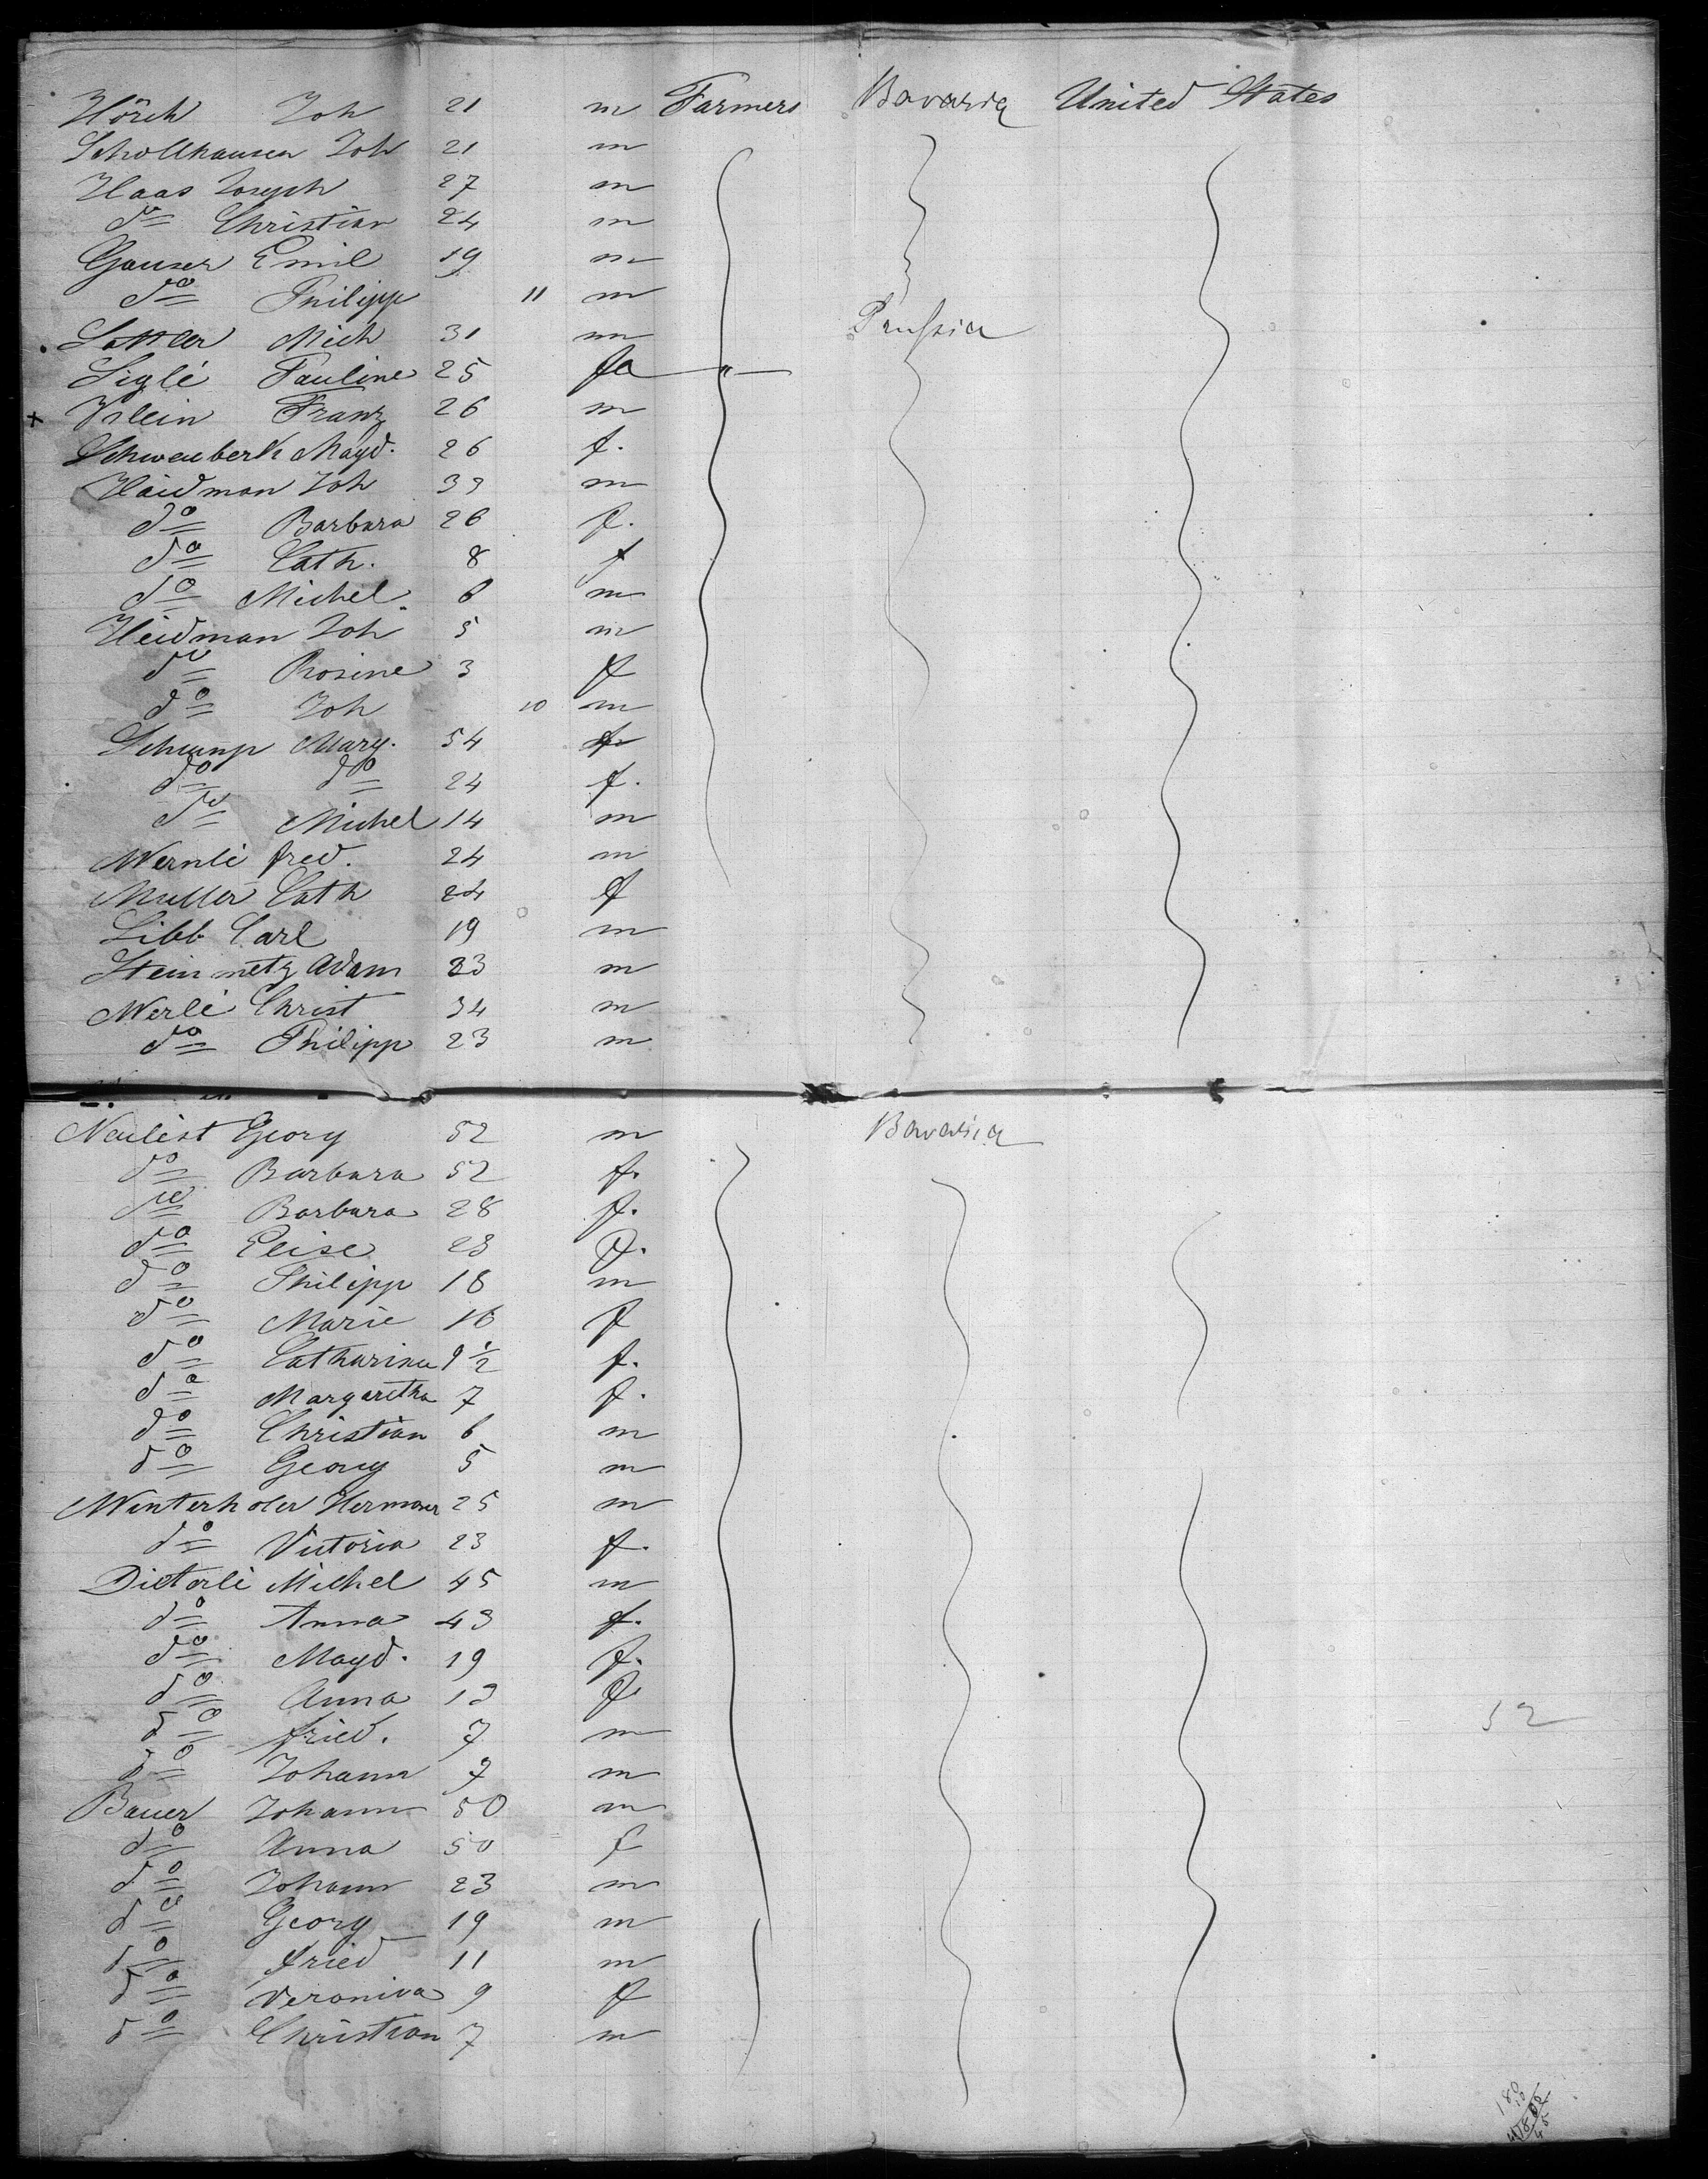 Hörch Joh 21 m Farmers Bavaria United States
Schollhausen Joh 21 m
Haas Joseph 27 m
do Christian 24 m
Gauser Emil 19 m
do Philipp 11 m
Sattler Mich 31 m Prussia
Siglé Pauline 25 fa "
x Klein Franz 26 m
Schweuberk Magd. 26 f.
Haidman Joh 39 m
do Barbara 26 f.
do Cath. 8 f
do Michel. 6 m
Heidman Joh 5 m
do Rosine 3 f
do Joh 10 m
Schump Marg. 54 f
do do 24 f.
do Michel 14 m
Wernli fred. 24 m
Muller Cath 24 f
Libb Carl 19 m
Steinmetz Adam 23 m
Werlé Christ 34 m
do Philipp 23 m
Neulist Georg 52 m Bavaria
do Barbara 52 f.
do Barbara 28 f.
do Elise 23 f.
do Philipp 18 m
do Marie 16 f
do Catharina 9 1/2 f.
do Margaretha 7 f.
do Christian 6 m
do Georg 5 m
Winterholer Herman 25 m
do Victoria 23 f.
Dieterlé Michel 45 m
do Anna 43 f.
do Magd. 19 f.
do Anna 13 f
do fried. 7 m
do Johann 7 m
Bauer Johann 50 m
do Anna 50 f
do Johann 23 m
do Georg 19 m
do fried 11 m
do Veronica 9 f
do Christian 7 m
52